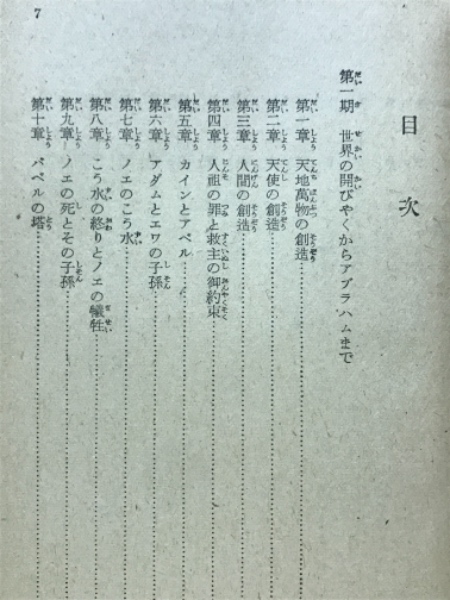 目次
第一期 世界の開びやくからアブラハムまで
第一章 天地萬物の創造
第二章 天使の創造
第三章 人間の創造
第四章 人祖の罪と救主の御約束
第五章 カインとアベル
第六章 アダムとエワの子孫
第七章 ノエのこう水
第八章 こう水の終りとノエの犠牲
第九章 ノエの死とその子孫
第十章 バベルの塔
7